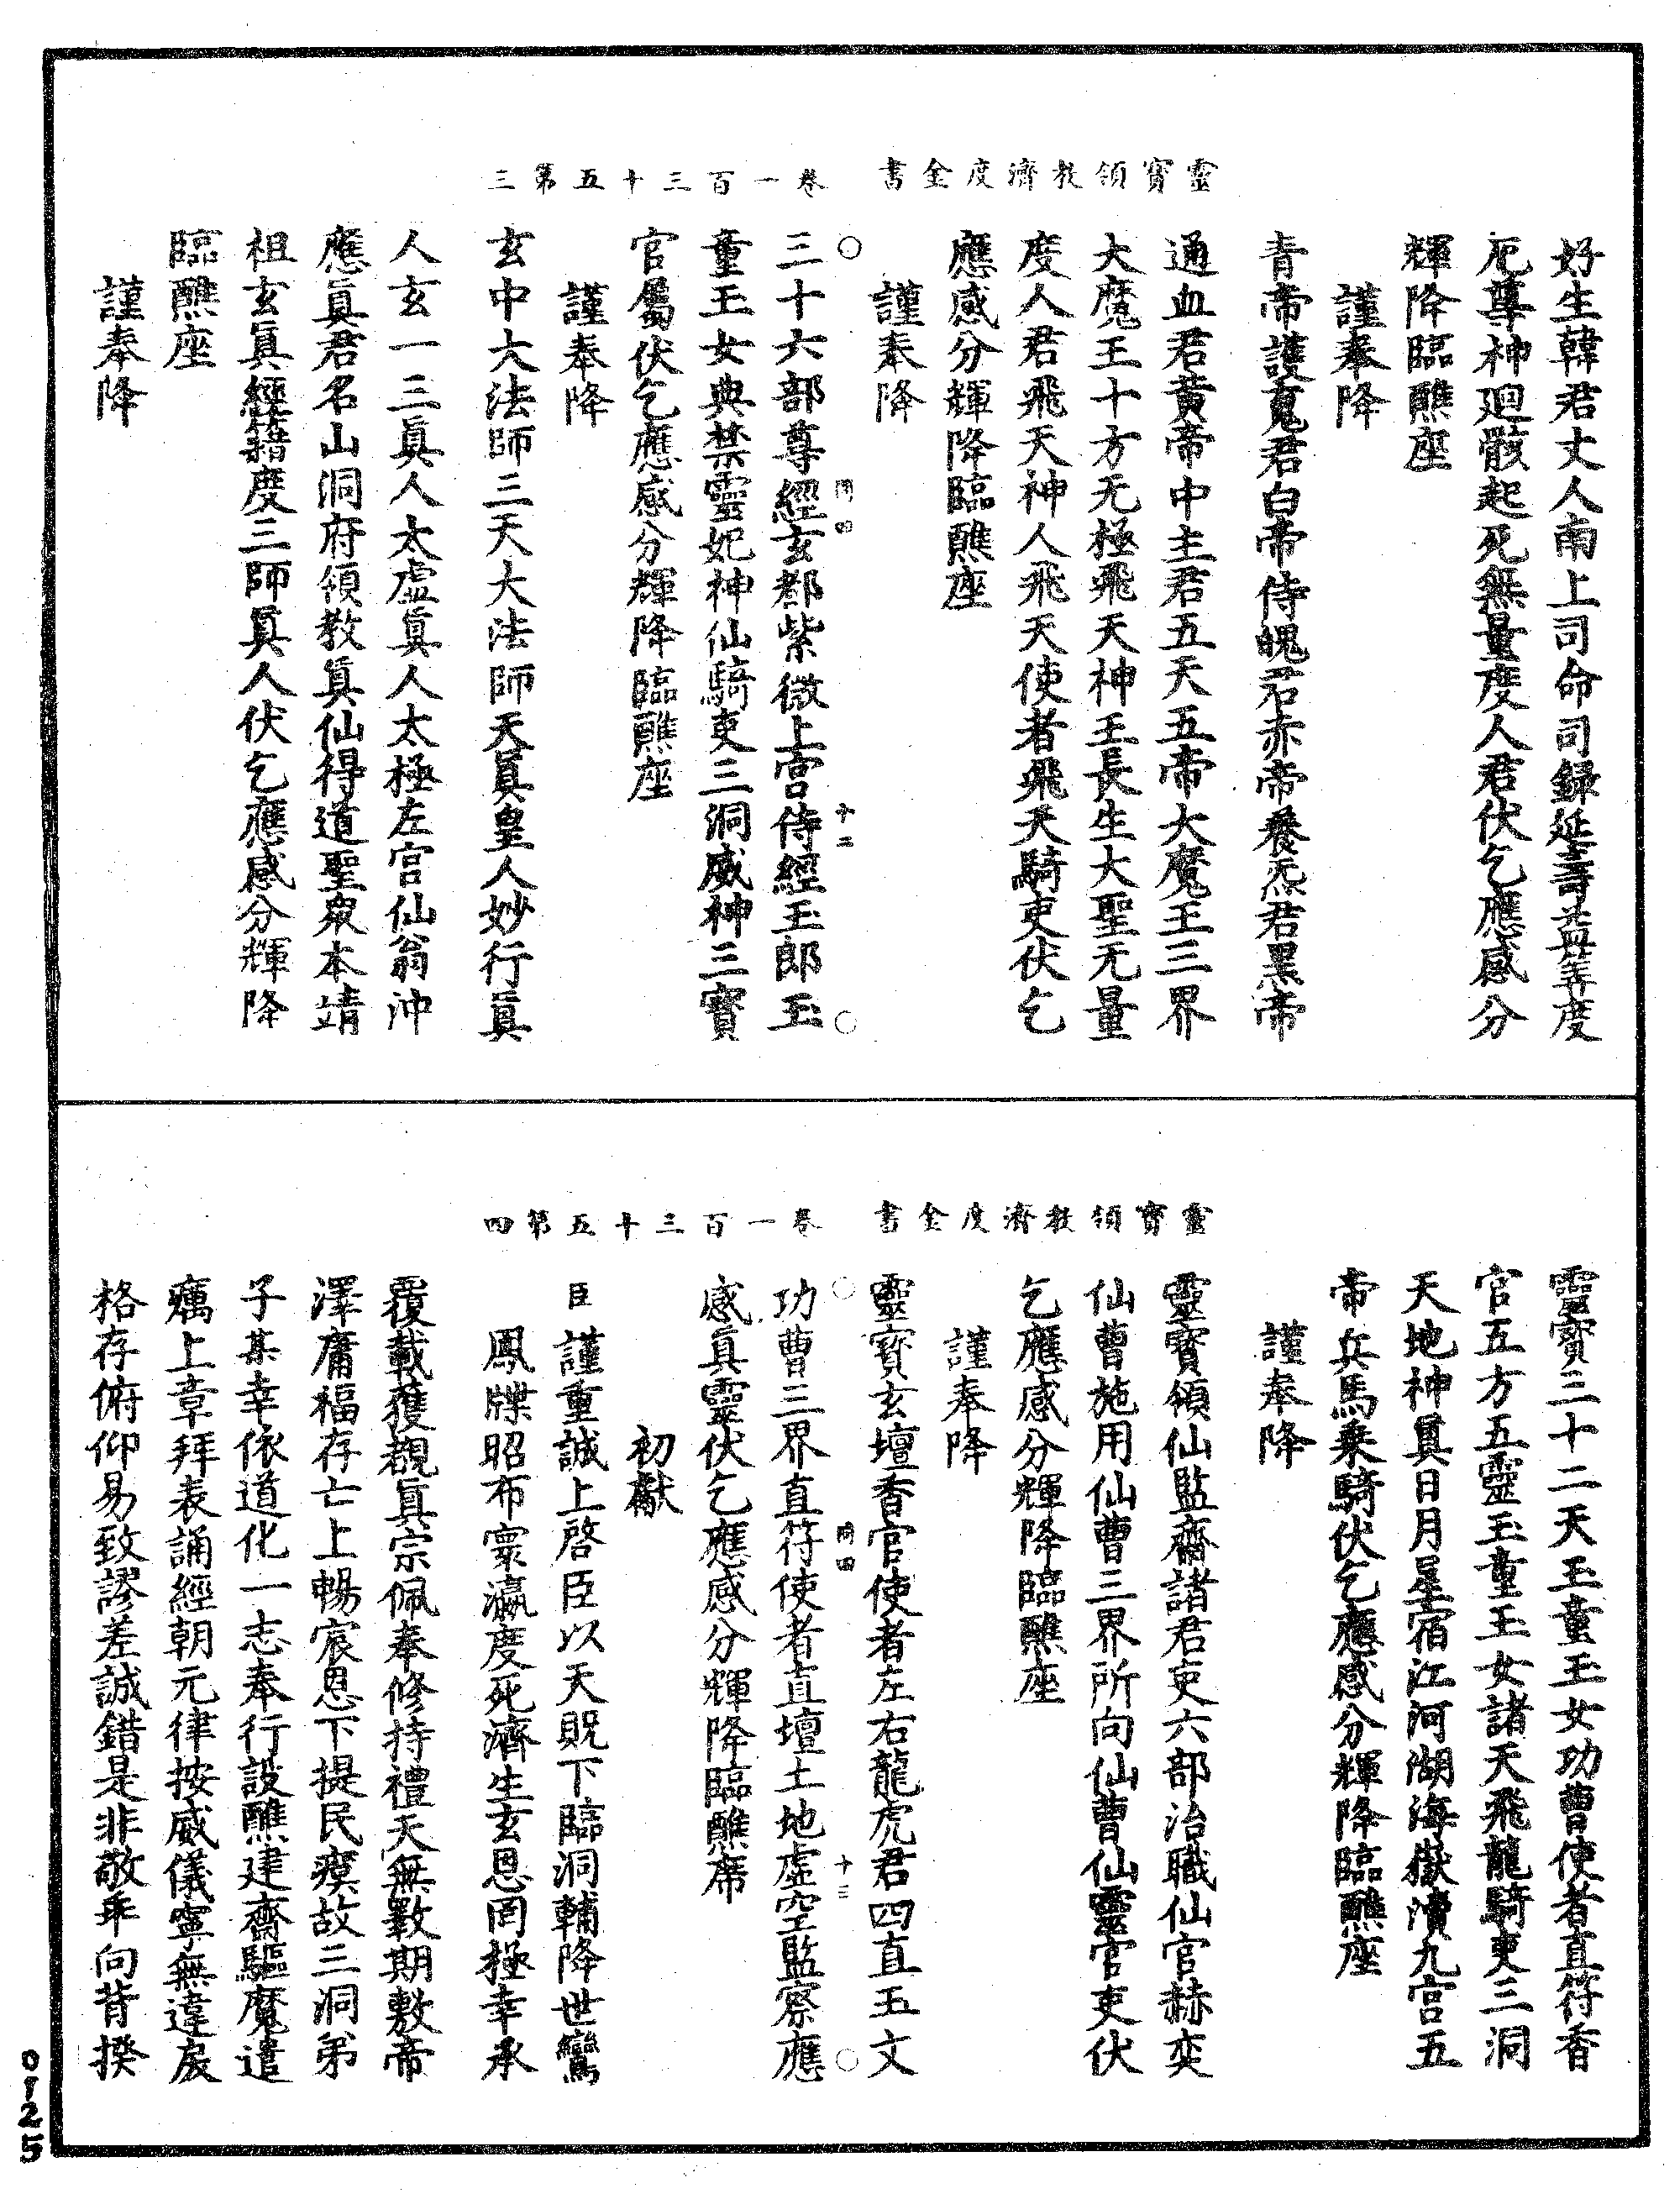 靈寶領教濟度金書　卷一百三十五第三
好生韓君丈人南上司命司録延壽益筭度
厄尊神廻骸起死無量度人君伏乞應感分
輝降臨醮座
謹奉降
青帝護䰟君白帝侍魄君赤帝養炁君黑帝
通血君黄帝中主君五天五帝大魔王三界
大魔王十方无極飛天神王長生大聖无量
度人君飛天神人飛天使者飛天騎吏伏乞
應感分輝降臨醮座
謹奉降
三十六部尊經玄都紫微上宫侍經玉郎玉
童玉女典禁靈妃神仙騎吏三洞威神三寳
官屬伏乞應感分輝降臨醮座
謹奉降
玄中大法師三天大法師天眞皇人妙行眞
人玄一三眞人太虛眞人太極左宫仙翁沖
應眞君名山洞府領教眞仙得道聖衆本靖
祖玄眞經籍度三師眞人伏乞應感分輝降
臨醮座
謹奉降
十二
靈寶領教濟度金書　卷一百三十五第四
靈寳三十二天玉童玉女功曹使者直符香
官五方五靈玉童玉女諸天飛龍騎吏三洞
天地神眞日月星宿江河湖海嶽瀆九宫五
帝兵馬乗騎伏乞應感分輝降臨醮座
謹奉降
靈寳領仙監齋諸君吏六部治職仙官赫奕
仙曹施用仙曹三界所向仙曹仙靈官吏伏
乞應感分輝降臨醮座
謹奉降
靈寳玄壇香官使者左右龍虎君四直五文
功曹三界直符使者直壇土地虛空監察應
感眞靈伏乞應感分輝降臨醮席
初獻
臣謹重誠上啓臣以天貺下臨洞輔降世鸞
鳳牒昭布寰瀛度死濟生玄恩罔極幸承
覆載獲覩眞宗佩奉修持禮天無數期敷帝
澤庸福存亡上暢宸恩下提民瘼故三洞弟
子某幸依道化一志奉行設醮建齋驅魔遣
癘上章拜表誦經朝元律按威儀寧無違戾
格存俯仰易致謬差誠錯是非敬乖向背揆
十三
0125